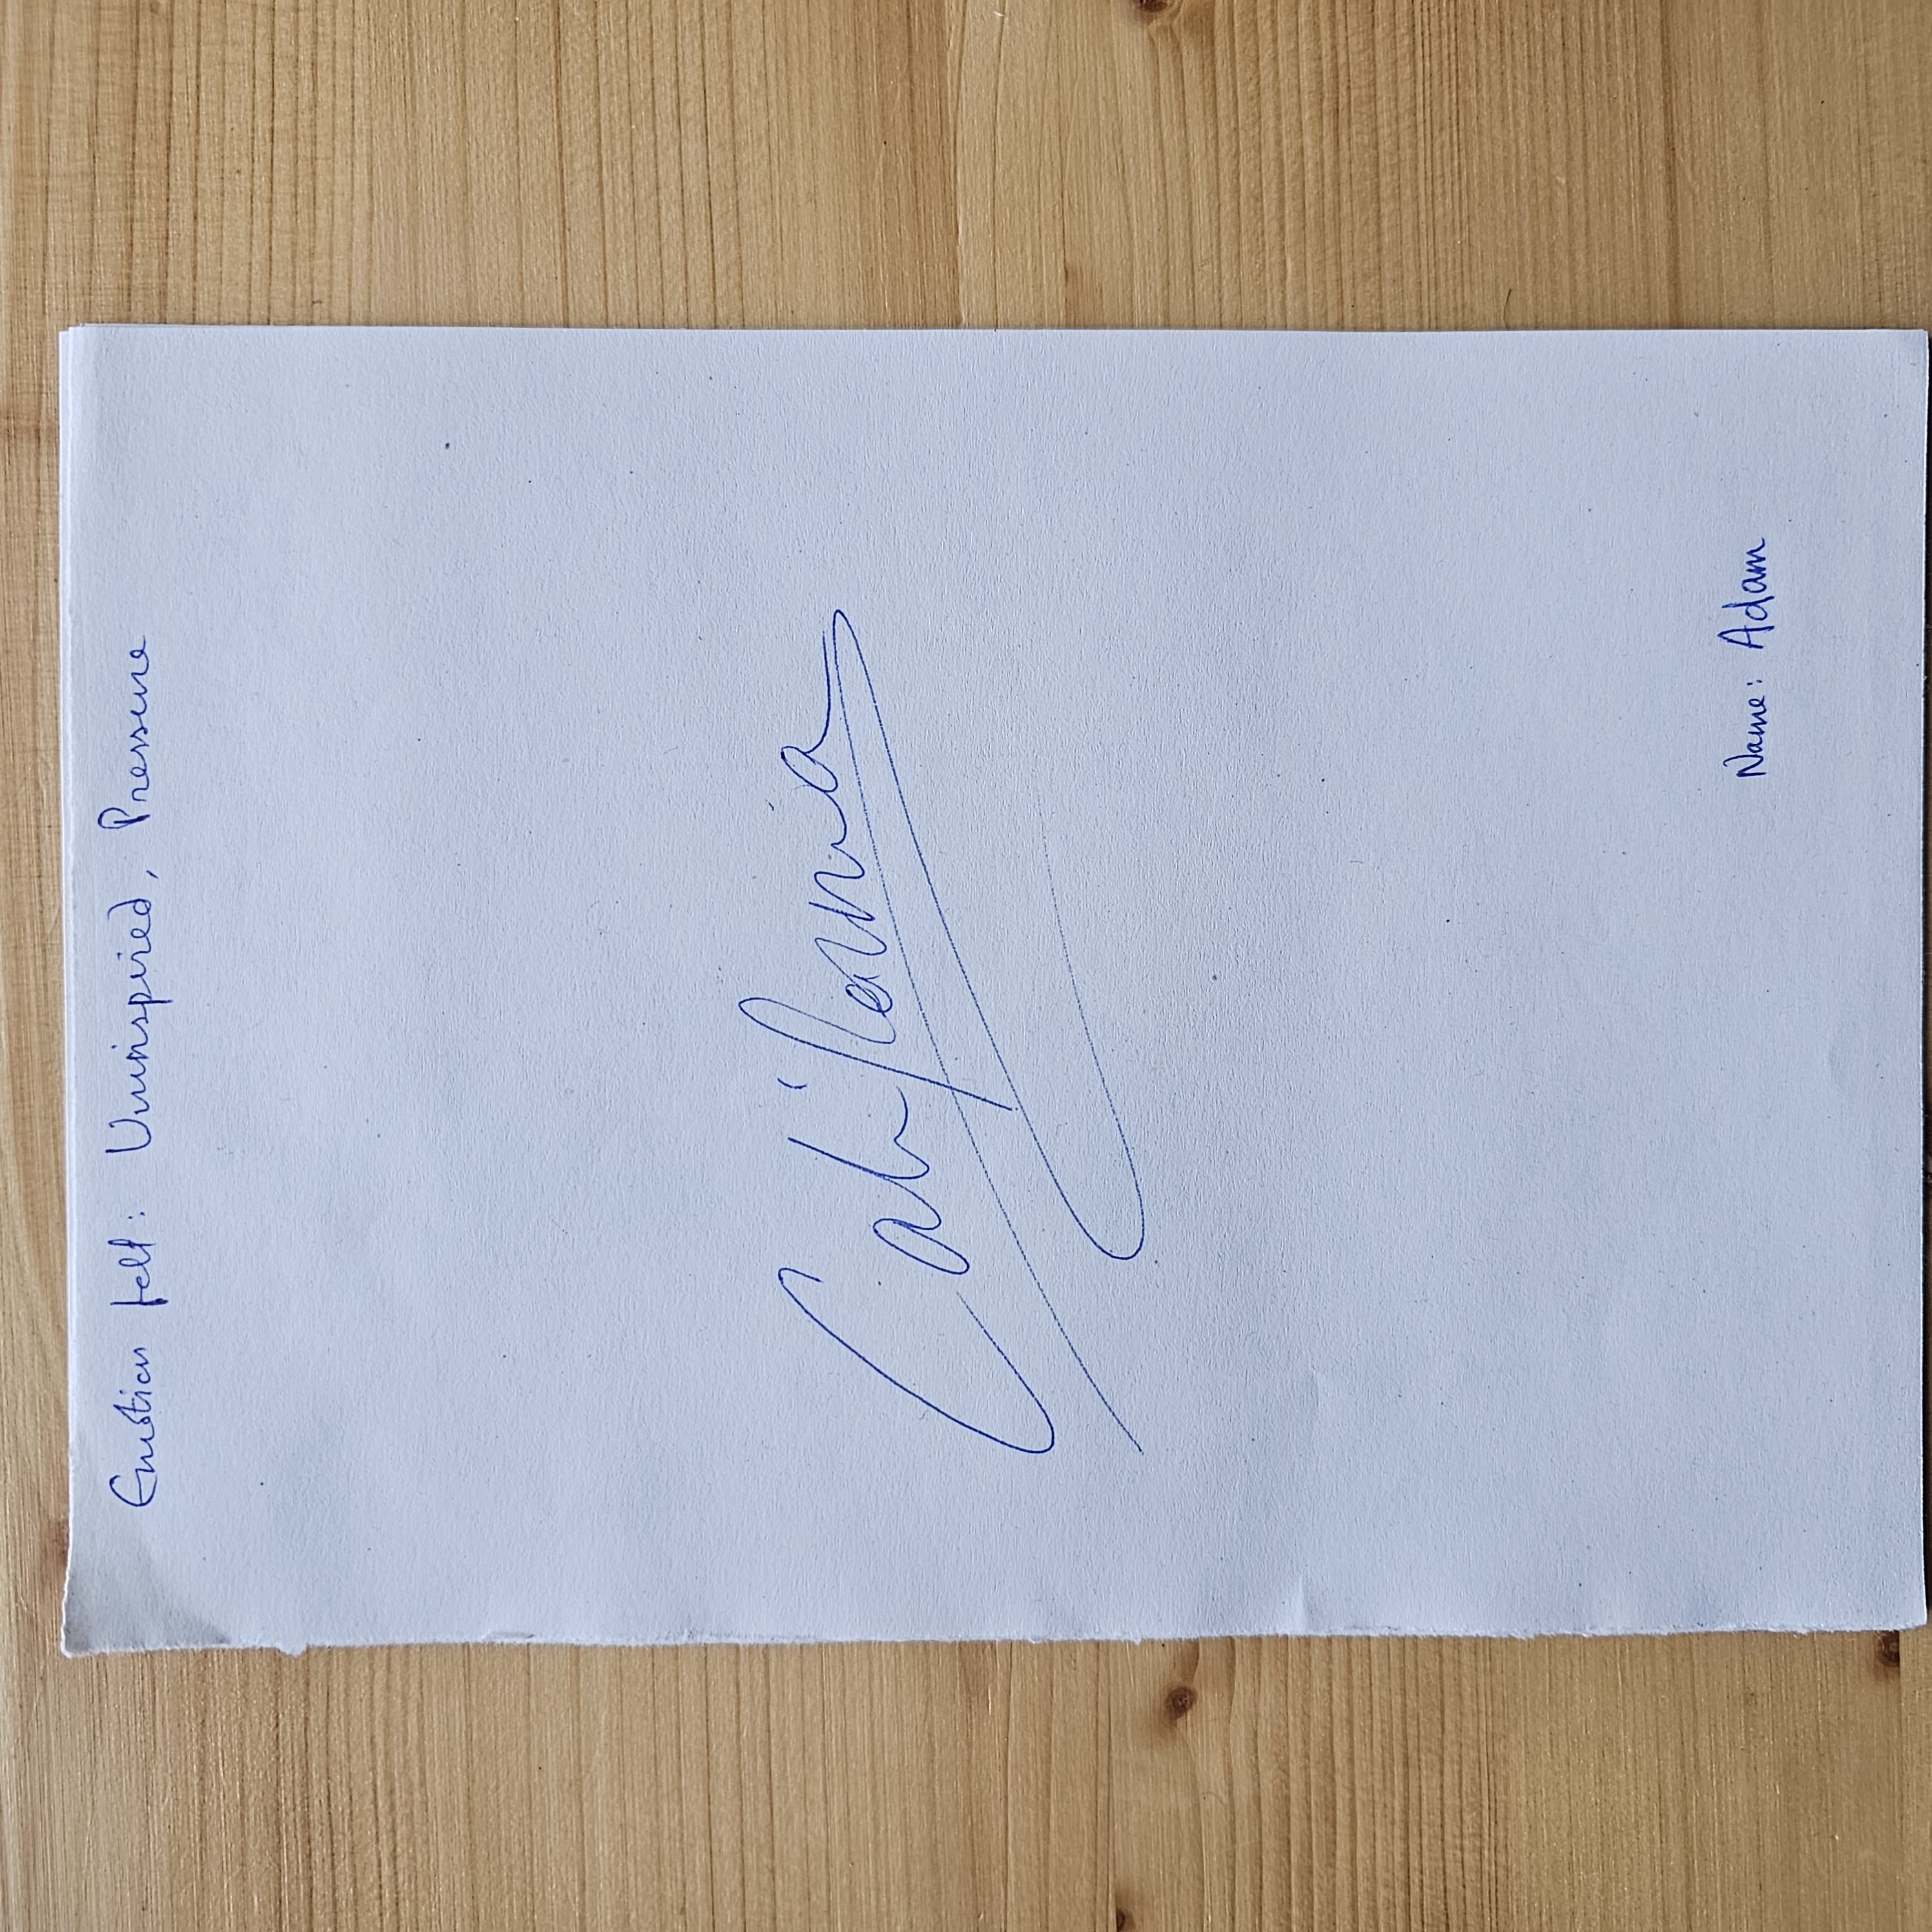 Emotion felt: Uninspired, Pressure
California
Name: Adam